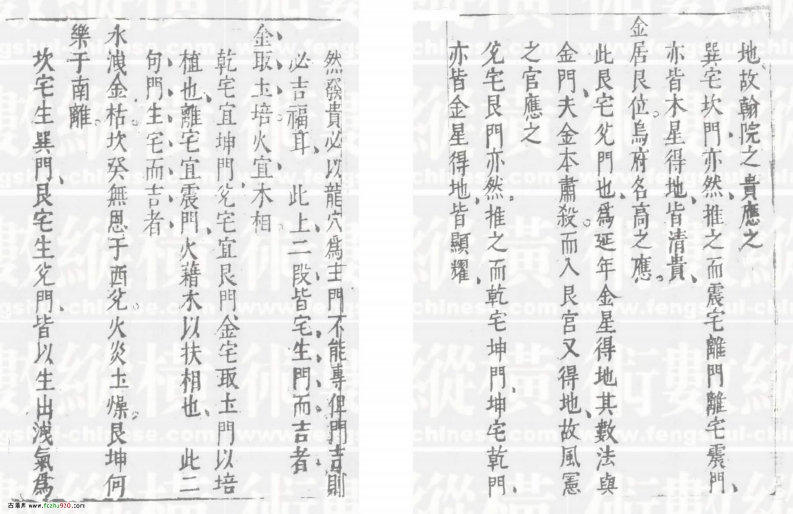 地故翰院之貴應之
巽宅坎門亦然推之而震宅離門離宅震門
亦皆木星得地皆清貴
金居艮位烏府名高之應
此艮宅兊門也爲延年金星得地其數法與
金門夫金本肅殺而入艮宮又得地故風憲
之官應之
兊宅艮門亦然推之而乾宅坤門坤宅乾門
亦皆金星得地皆顯耀
然發貴必以龍穴爲主門不能專俾門吉則
必吉福耳 此上二段皆宅生門而吉者
金取土培火宜木相
乾宅宜坤門兊宅宜艮門金宅取土門以培
植也離宅宜震門火藉木以扶相也 此二
句門生宅而吉者
水洩金枯坎癸無恩于西兊火炎土燥艮坤何
樂于南離
坎宅生巽門艮宅生兊門皆以生出洩氣爲